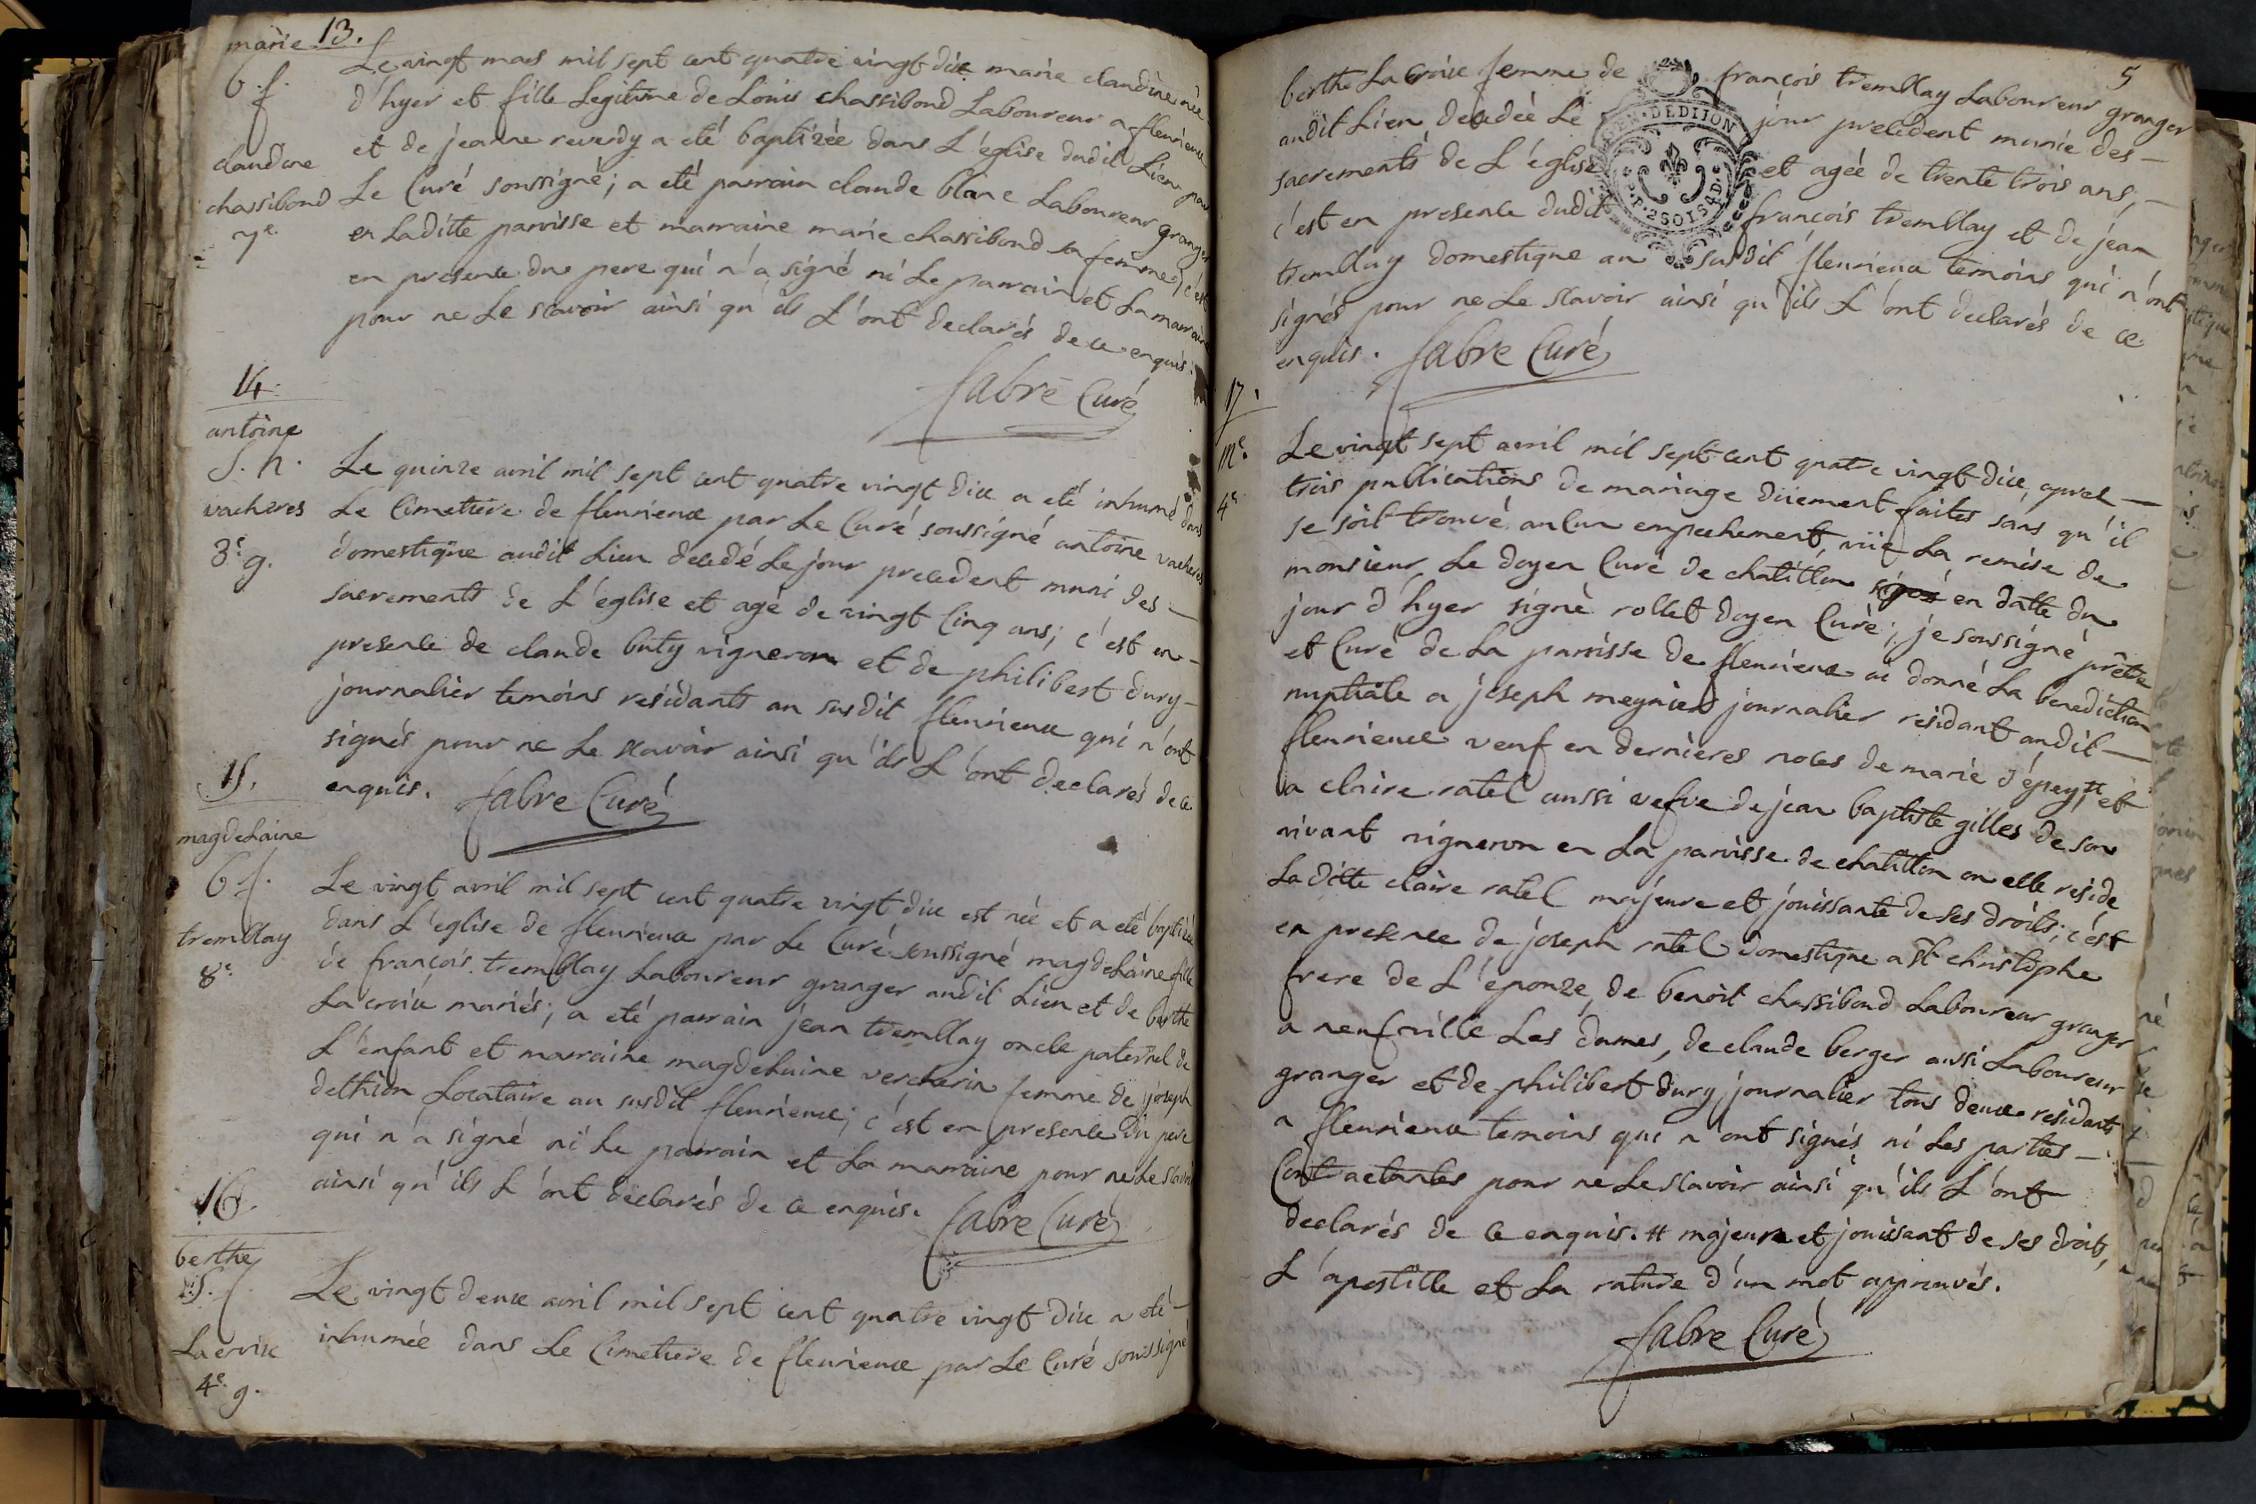 13.
marie
b. f.
claudine
chassibond
7e.
Le vingt mars mil sept cent quatre vingt dix marie claudine née
d'hyer et fille Legitime de Louis chassibond Laboureur a fleurieux
et de jeanne reverdy a eté baptizée dans L'église dudit Lieu par
Le Curé soussigné; a eté parrain claude blanc Laboureur granger
en Laditte parroisse et marraine marie chassibond sa femme; c'est
en presence du pere qui n'a signé ni Le parrain et La marraine
pour ne Le scavoir ainsi qu'ils L'ont declarés de ce enquis.
fabre Curé
14.
antoine
S. h.
vacheres
3e. g.
Le quinze avril mil sept cent quatre vingt dix a eté inhumé dans
Le Cimetiere de fleurieux par Le Curé soussigné antoine vacheres
domestique audit Lieu decedé Le jour precedent muni des
sacrements de L'église et agé de vingt Cinq ans; c'est en
presence de claude buty vigneron et de philibert dury
journalier temoins residants au susdit fleurieux qui n'ont
signés pour ne Le scavoir ainsi qu'ils L'ont declarés de ce
enquis. fabre Curé
15.
magdelaine
b f.
tremblay
8e.
Le vingt avril mil sept cent quatre vingt dix est née et a eté baptizée
dans L'eglise de fleurieux par Le Curé soussigné magdelaine fille
de françois tremblay Laboureur granger audit Lieu et de berthe
La croix mariés; a eté parrain jean tremblay oncle paternel de
L'enfant et marraine magdelaine vercherin femme de joseph
dethion Locataire au susdit fleurieux; c'est en presence du pere
qui n'a signé ni Le parrain et La marraine pour ne Le scavoir
ainsi qu'ils L'ont declarés de ce enquis. fabre Curé
16.
berthe
S. f.
La croix
4e. g.
Le vingt deux avril mil sept cent quatre vingt dix a eté
inhumée dans Le Cimetiere de fleurieux par Le Curé soussigné
5
berthe La croix femme de françois tremblay Laboureur granger
audit Lieu decedée Le jour precedent munie des
sacrements de L'église et agée de trente trois ans,
c'est en presence dudit françois tremblay et de jean
tremblay domestique au susdit fleurieux temoins qui n'ont
signés pour ne Le scavoir ainsi qu'ils L'ont declarés de ce
enquis. fabre Curé
GEN. DE DIJON
2 SOLS 4 D.
17.
me.
4e.
Le vingt sept avril mil sept cent quatre vingt dix, après
trois publications de mariage düement faites sans qu'il
se soit trouvé aucun empechement, vüe La remise de
monsieur Le doyen Curé de chatillon signé en datte du
jour d'hyer signé rollet doyen Curé; je soussigné prêtre
et Curé de La parroisse de fleurieux ai donné La benediction
nuptiale a joseph meynier journalier residant audit
fleurieux veuf en dernieres noces de marie d'épey, # et
a claire ratel aussi vefve de jean baptiste gilles de son
vivant vigneron en La parroisse de chatillon ou elle reside
La ditte claire ratel majeure et jouissante de ses droits; c'est
en presence de joseph ratel domestique a St christophe
frere de L'épouze, de benoit chassibond Laboureur granger
a neufville Les dames, de claude berger aussi Laboureur
granger et de philibert dury journalier tous deux residants
a fleurieux temoins qui n'ont signés ni Les parties
Contractantes pour ne Le scavoir ainsi qu'ils L'ont
declarés de ce enquis. # majeur et jouissant de ses droits,
L'apostille et La rature d'un mot approuvés.
fabre Curé